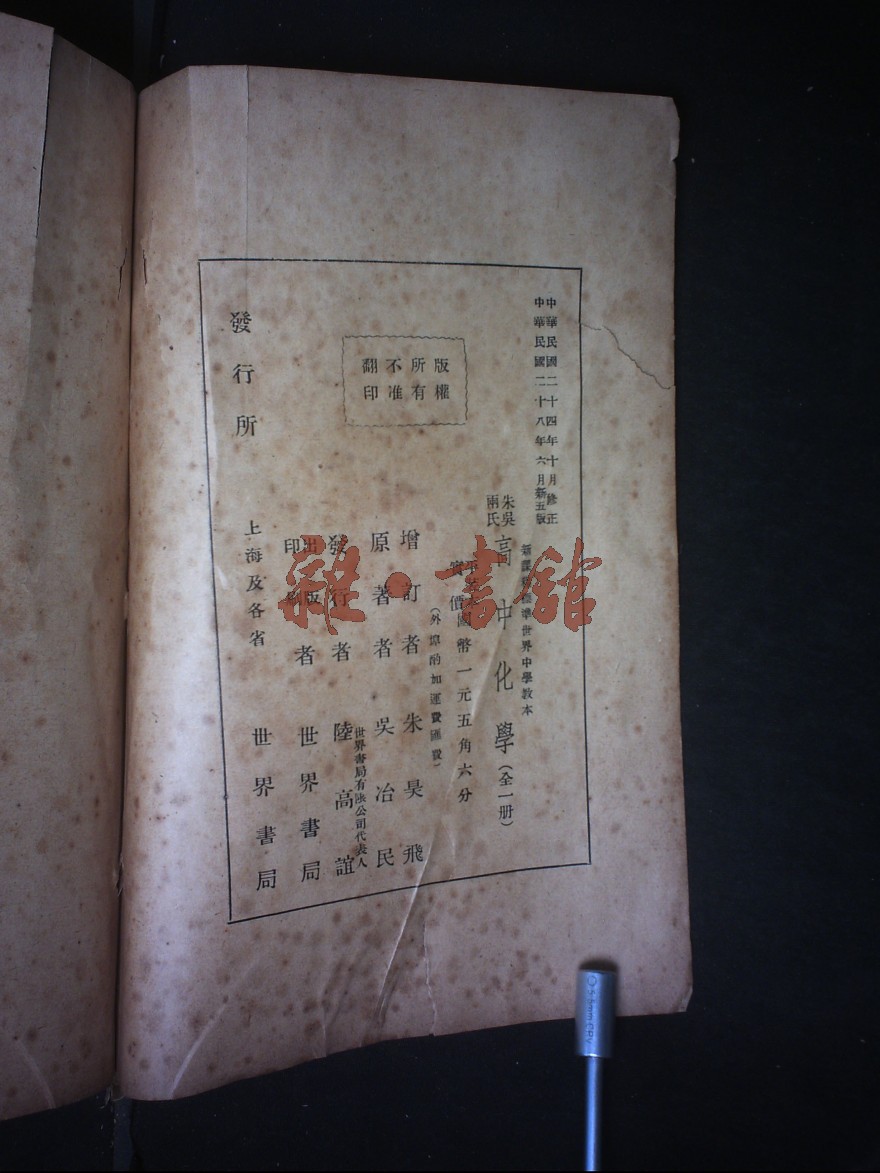 中華民國二十四年十月修正
中華民國二十八年六月新五版
新課程標準世界中學教本
朱吳
兩氏
高中化學(全一册)
實價國幣一元五角六分
(外埠酌加運費匯費)
版權
所有
不准
翻印
增訂者 朱昊飛
原著者 吳冶民
世界書局有限公司代表人
發行者 陸高誼
出版
印刷
者 世界書局
發行所 上海及各省 世界書局
雜·書館
5.5mm